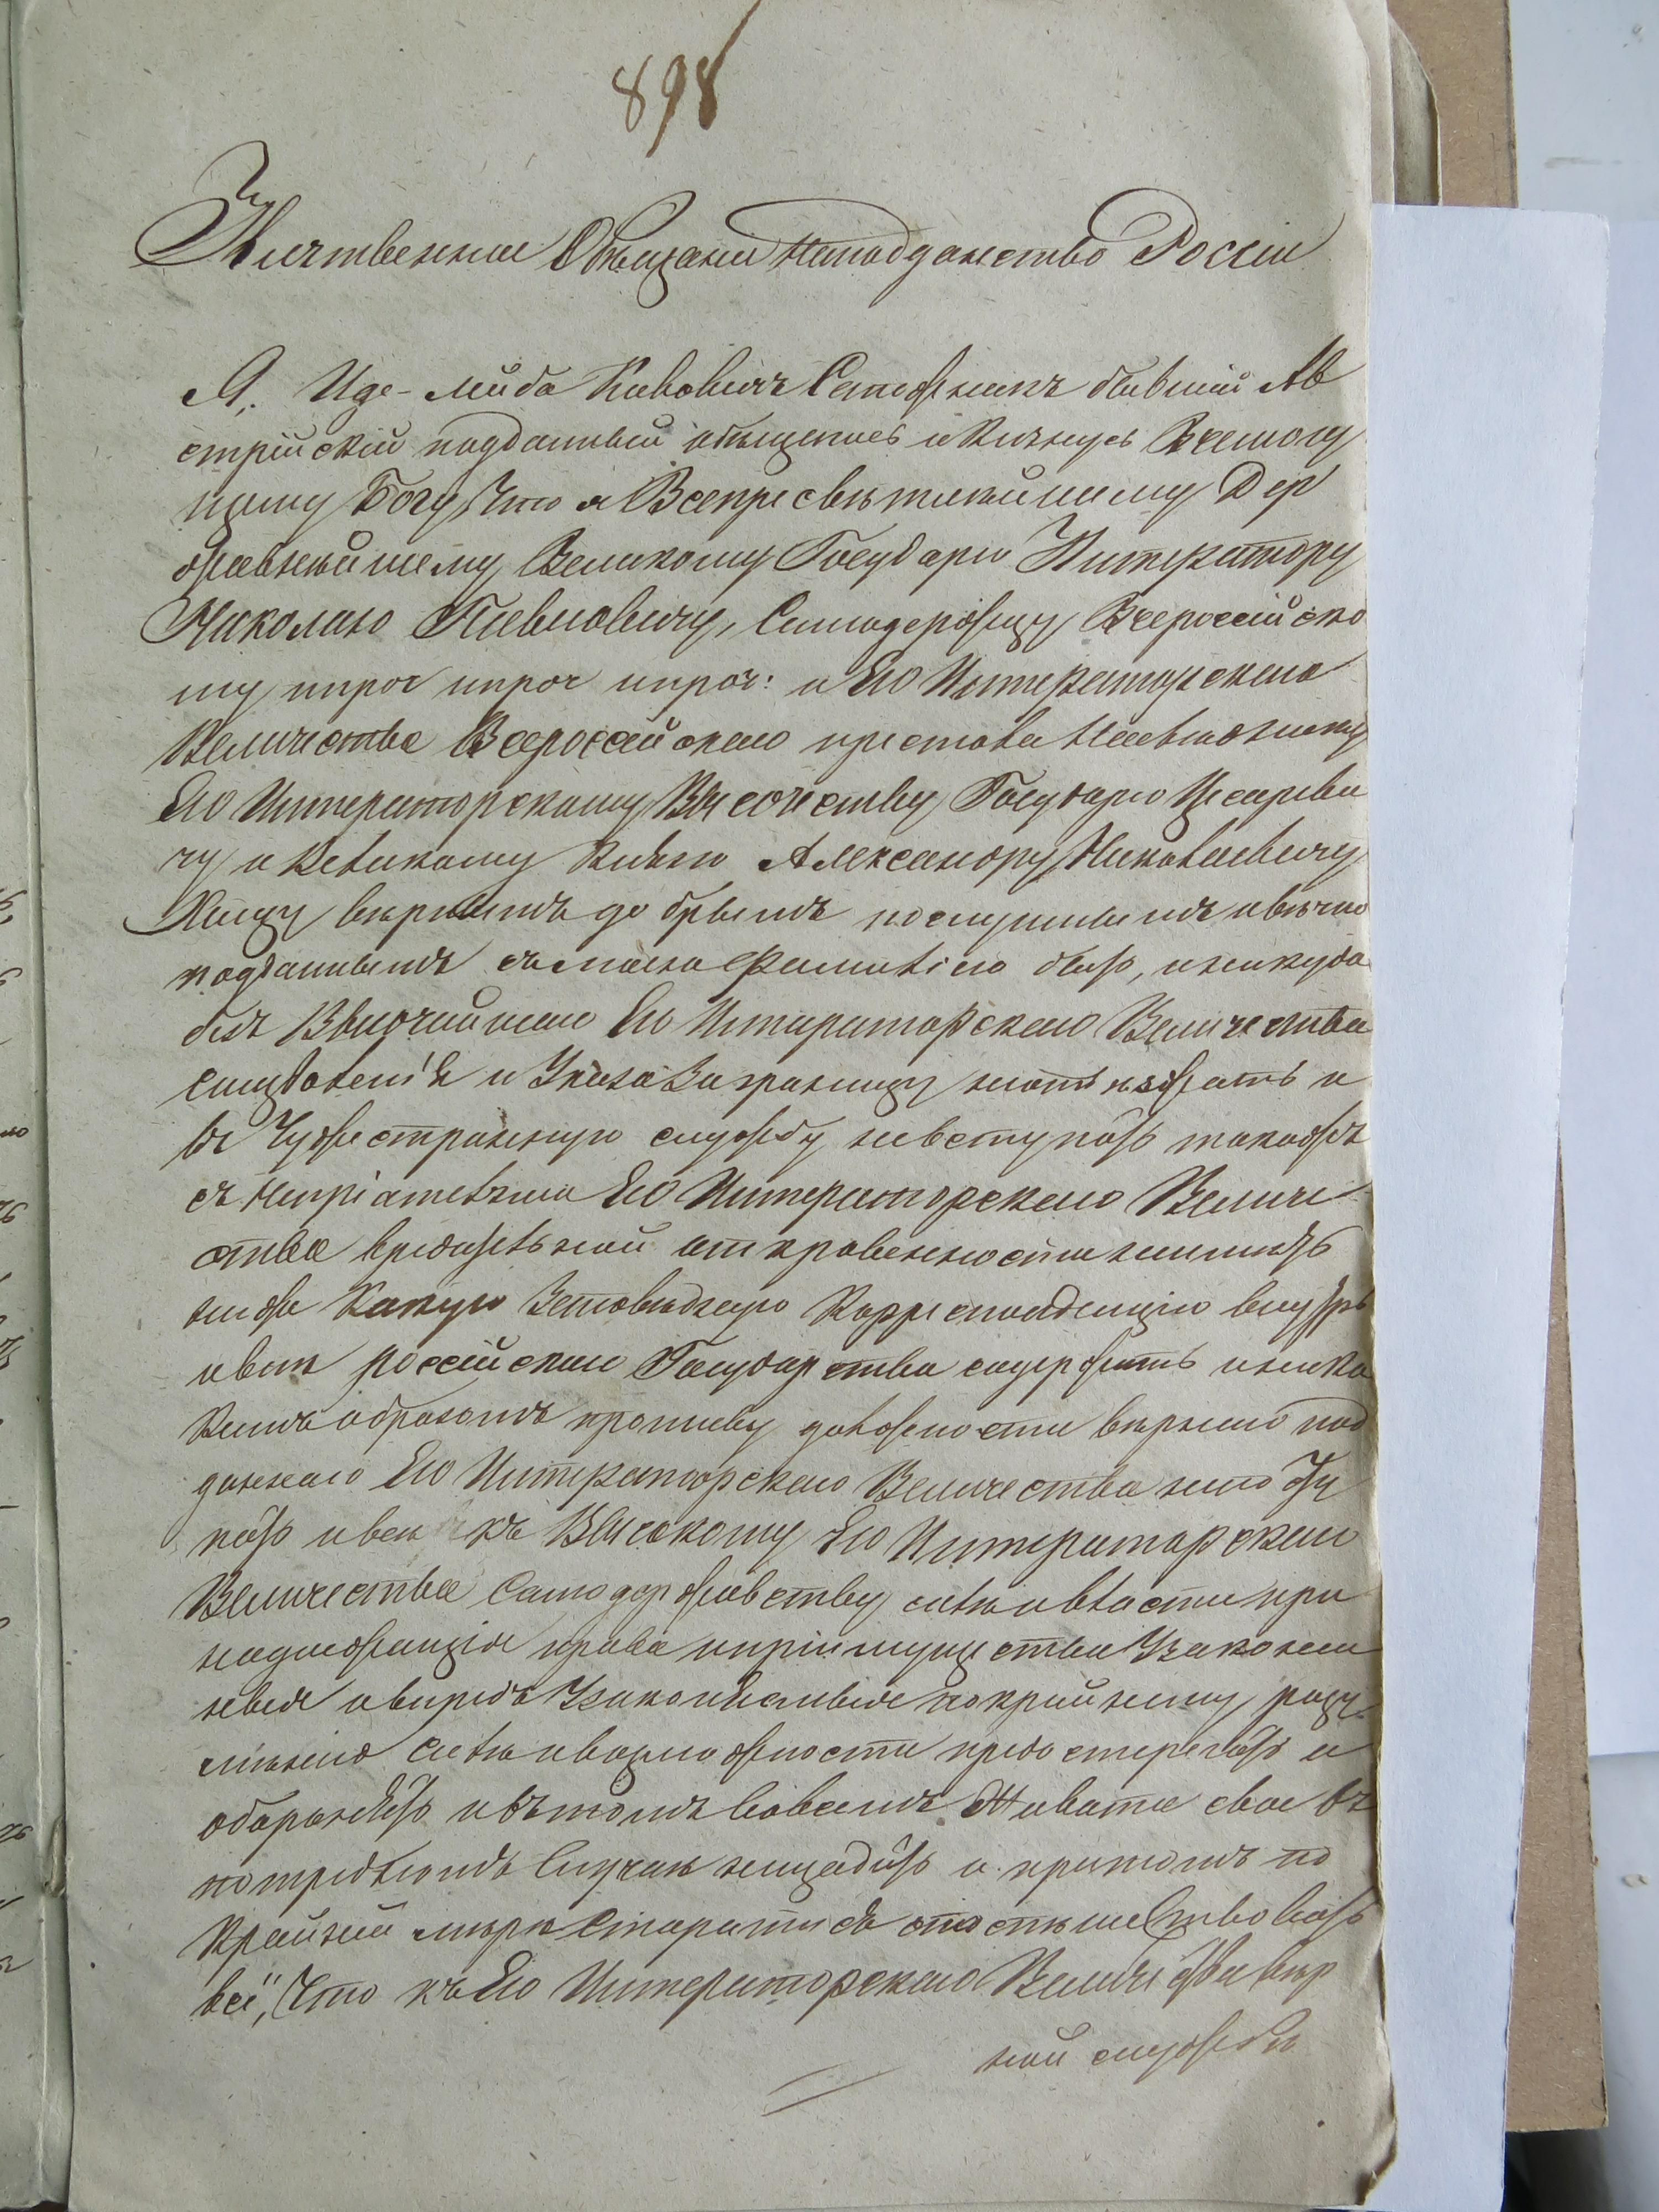 898
Клятвенное Обѣщание Наподданство России
Я. Иде-Лейба Кивовичъ бывший Ав
стрійскій подданный обѣщаюсь и Клянусь Всемогу
щему Богу, Что я Всепресвѣтлейшему Дер
жавнѣйшему Великому Государю Императору
Николаю Павловичу, Самодержцу Всероссийско
му ипроч ипроч ипроч: и Его Императорскаго
Величества Всероссейскаго престола Наследнику
Его Императорскому Высочеству Государю Цесареви
чу и Великому Князю Александру Николаевичу
Хощу вѣрнымъ добрымъ послушнымъ ивѣчно
подданнымъ съ моею Фамилією быть, иникуда
безъ Высочайшаго Его Императорскаго Величества
соизволенія и Указа Заграницу неотъезжать и
въ Чужестранную службу невступать такожъ
съ Непріятельми Его Императорскаго Величе
ства вредительной откровенности неиметь
ниже Какую Заповедную Корреспонденцію внутрь
ивне російскаго Государства содержать иника
кимъ образомъ противу должности вернаго под
даннаго Его Императорскаго Величества непосту
пать ивсе къ Высокому Его Императорскаго
Величества Самодержавству силѣ ивласти при
надлежащія права ипріимущества Узаконен
ныя ивпредь Узаконяемыя покрайнему разу
мѣнию силѣ ивозможности предостерегать и
оборонять ивътомъ Живота свое въ
потребномъ Случаѣ нещадить и притомъ по
Крайней мѣрѣ Старатися споспѣшествовать
всё, Что къ Его Императорскаго Величества вѣр
ной службѣ